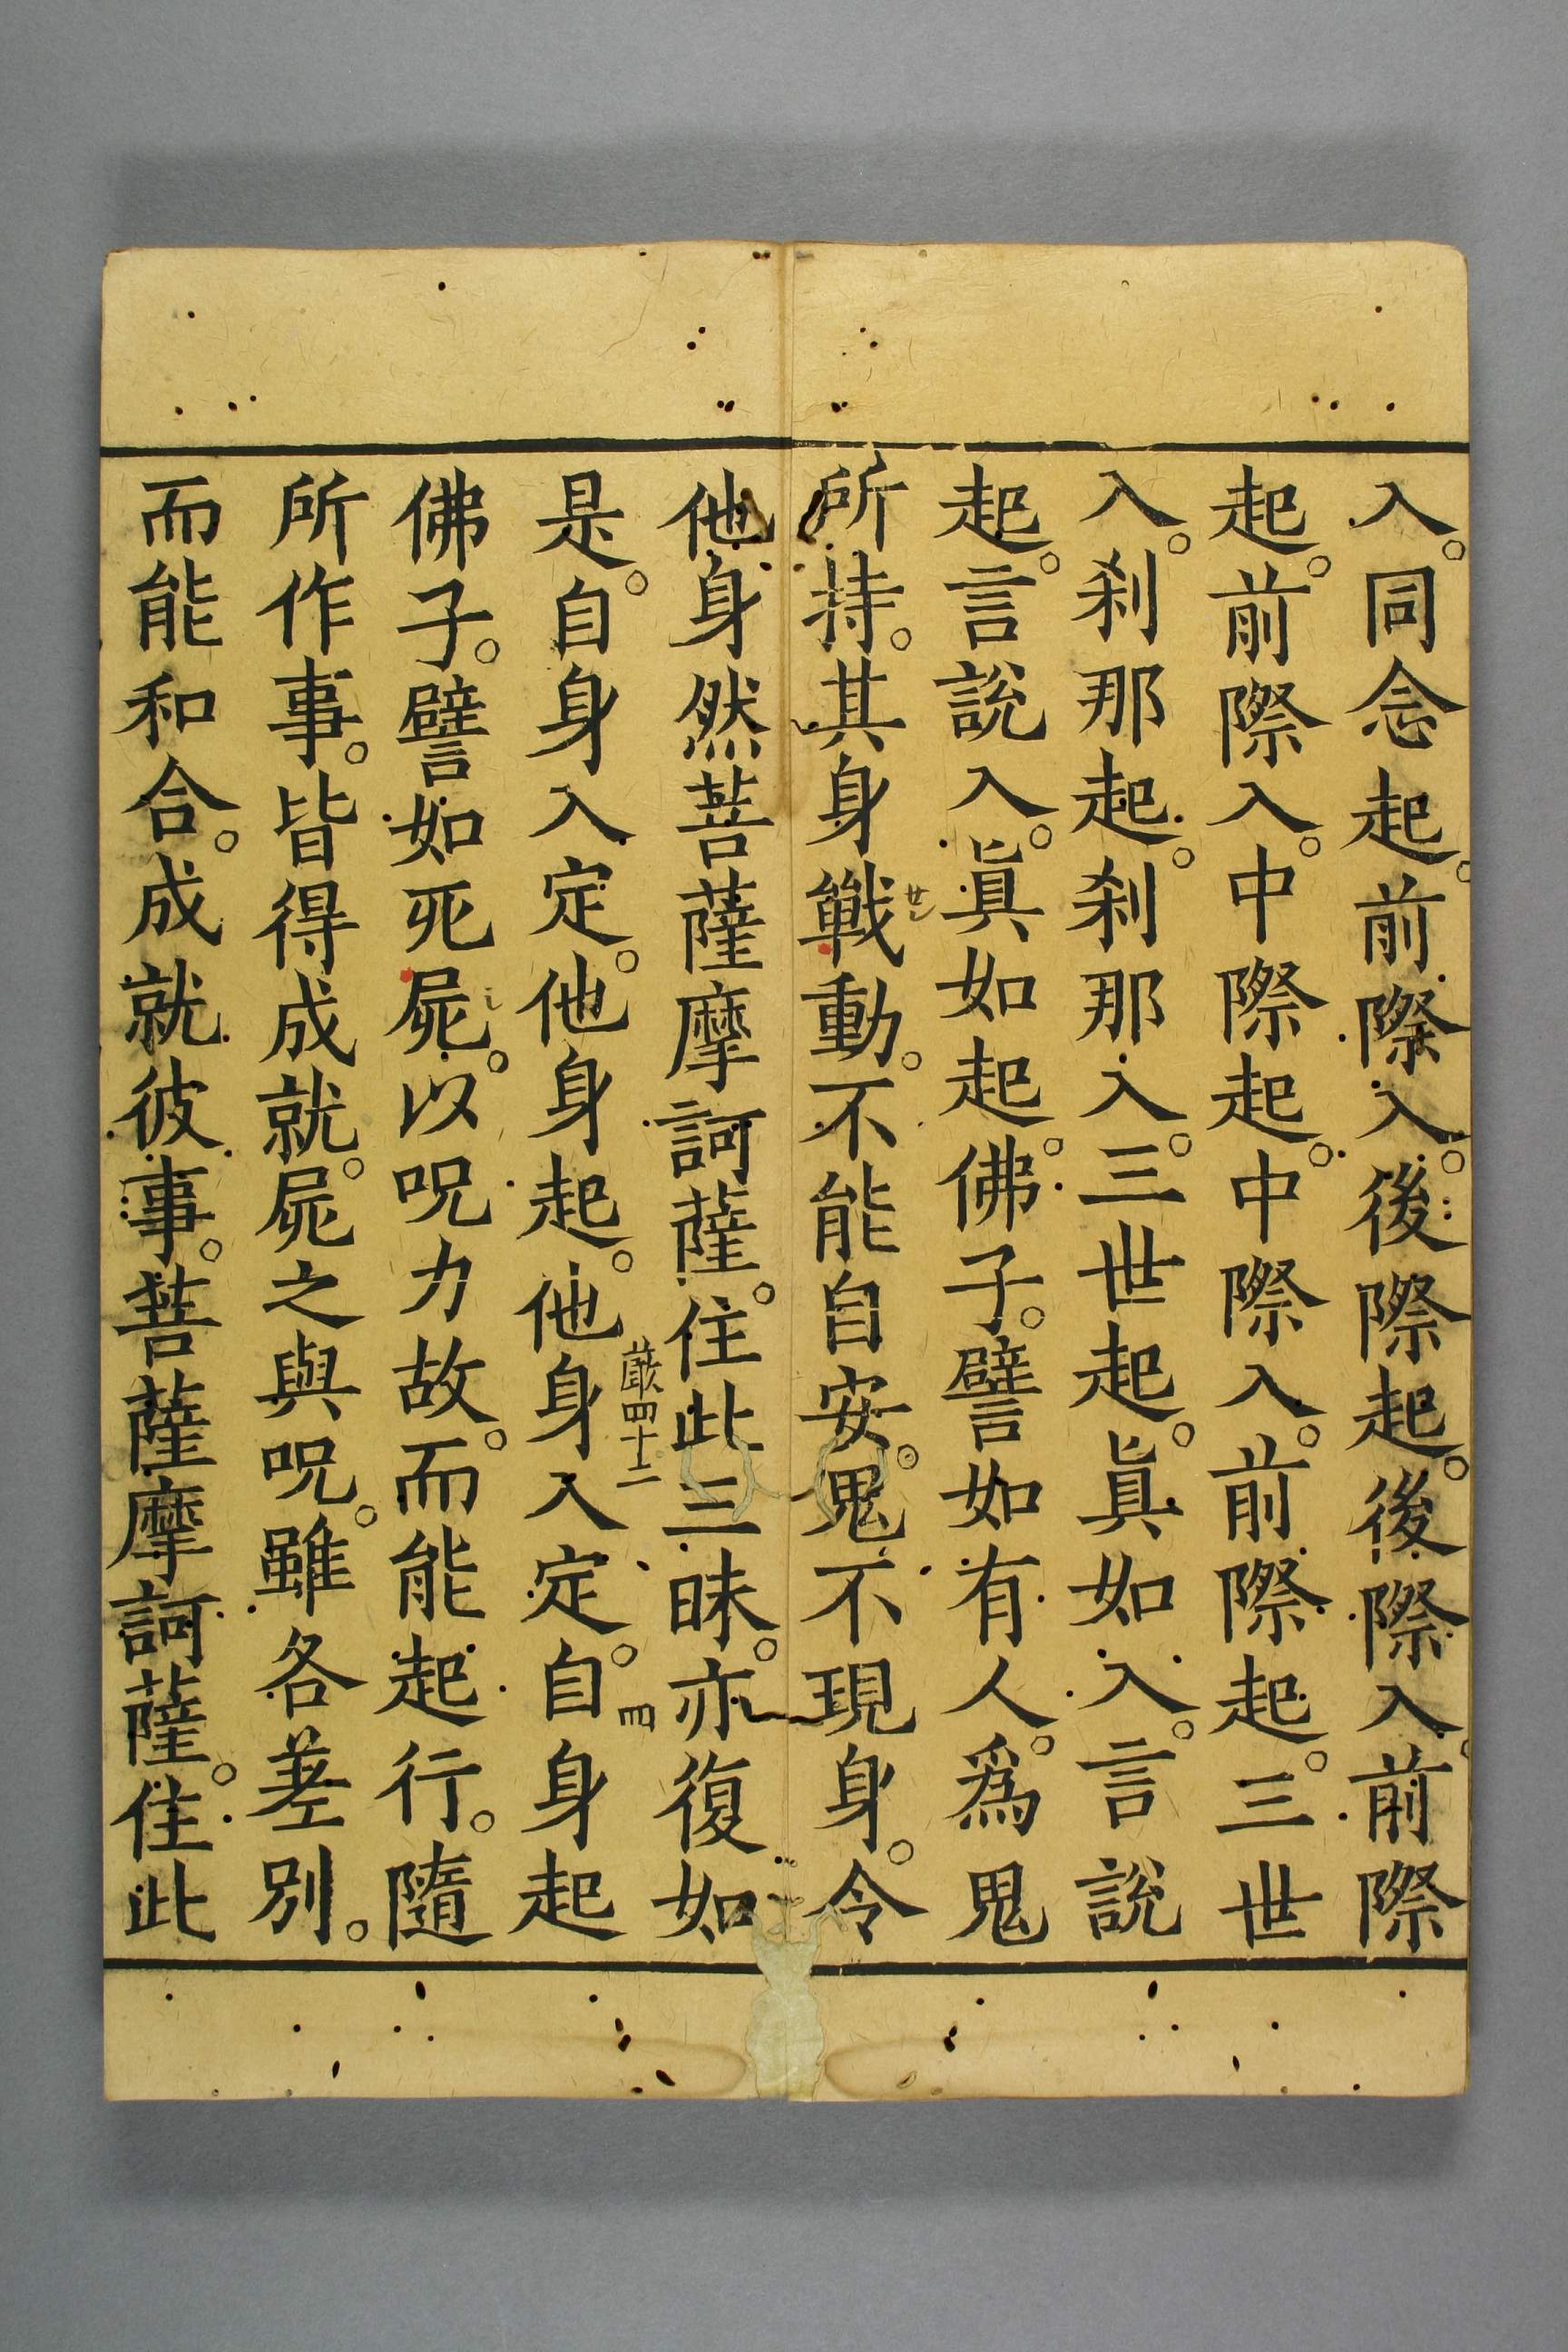 入。同念起。前際入。後際起。後際入。前際
起。前際入。中際起。中際入。前際起。三世
入。刹那起。刹那入。三世起。眞如入。言說
起。言說入。眞如起。佛子。譬如有人。爲鬼
所持。其身戰動。不能自安。鬼不現身。令
他身然菩薩摩訶薩。住此三昧。亦復如
嚴四十二
四
是。自身入定。他身起。他身入定。自身起
佛子。譬如死屍。以呪力故。而能起行。隨
所作事。皆得成就。屍之與呪。雖各差別。
而能和合。成就彼事。菩薩摩訶薩。住此